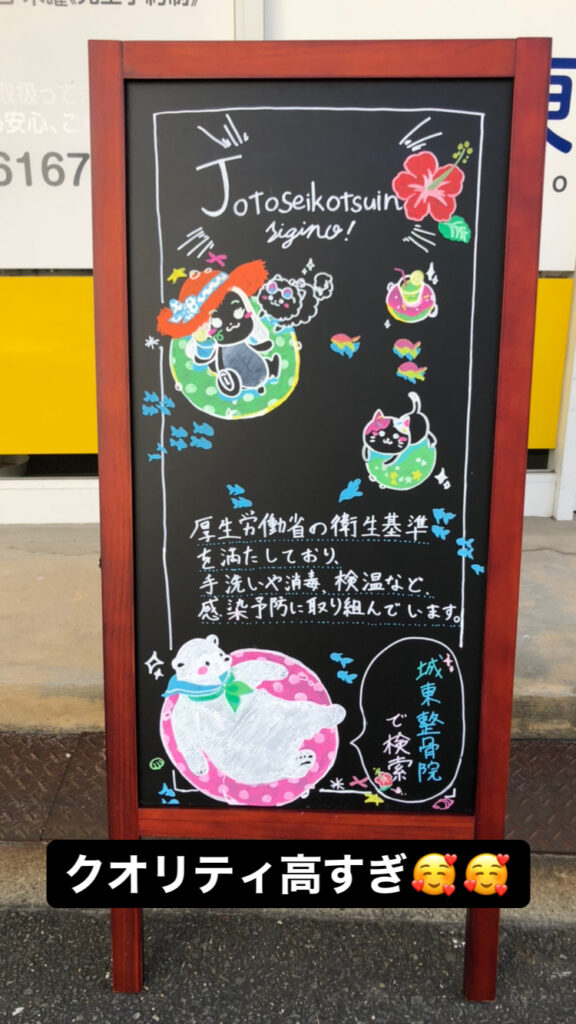 取扱って
安心、こ
6167
Jotoseikotsuin
sigino!
厚生労働省の衛生基準
を満たしており、
手洗いや消毒、検温など、
感染予防に取り組んでいます。
城東整骨院
で検索
クオリティ高すぎ🥰🥰